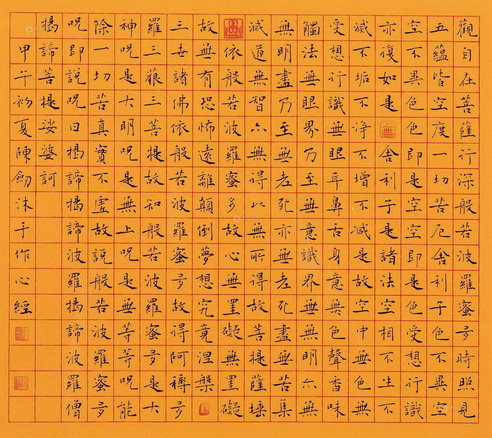 觀自在菩薩行深般若波羅蜜多時照見
五蘊皆空度一切苦厄舍利子色不異空
空不異色色即是空空即是色受想行識
亦復如是舍利子是諸法空相不生不
滅不垢不淨不增不減是故空中無色無
受想行識無眼耳鼻舌身意無色聲香味
觸法無眼界乃至無意識界無無明亦無
無明盡乃至無老死亦無老死盡無苦集
滅道無智亦無得以無所得故菩提薩埵
依般若波羅蜜多故心無罣礙無罣礙
故無有恐怖遠離顛倒夢想究竟涅槃
三世諸佛依般若波羅蜜多故得阿耨多
羅三藐三菩提故知般若波羅蜜多是大
神呪是大明呪是無上呪是無等等呪能
除一切苦真實不虛故說般若波羅蜜多
呪即說呪曰揭諦揭諦波羅揭諦波羅僧
揭諦菩提娑婆訶
甲午初夏陳劍沐手作心經